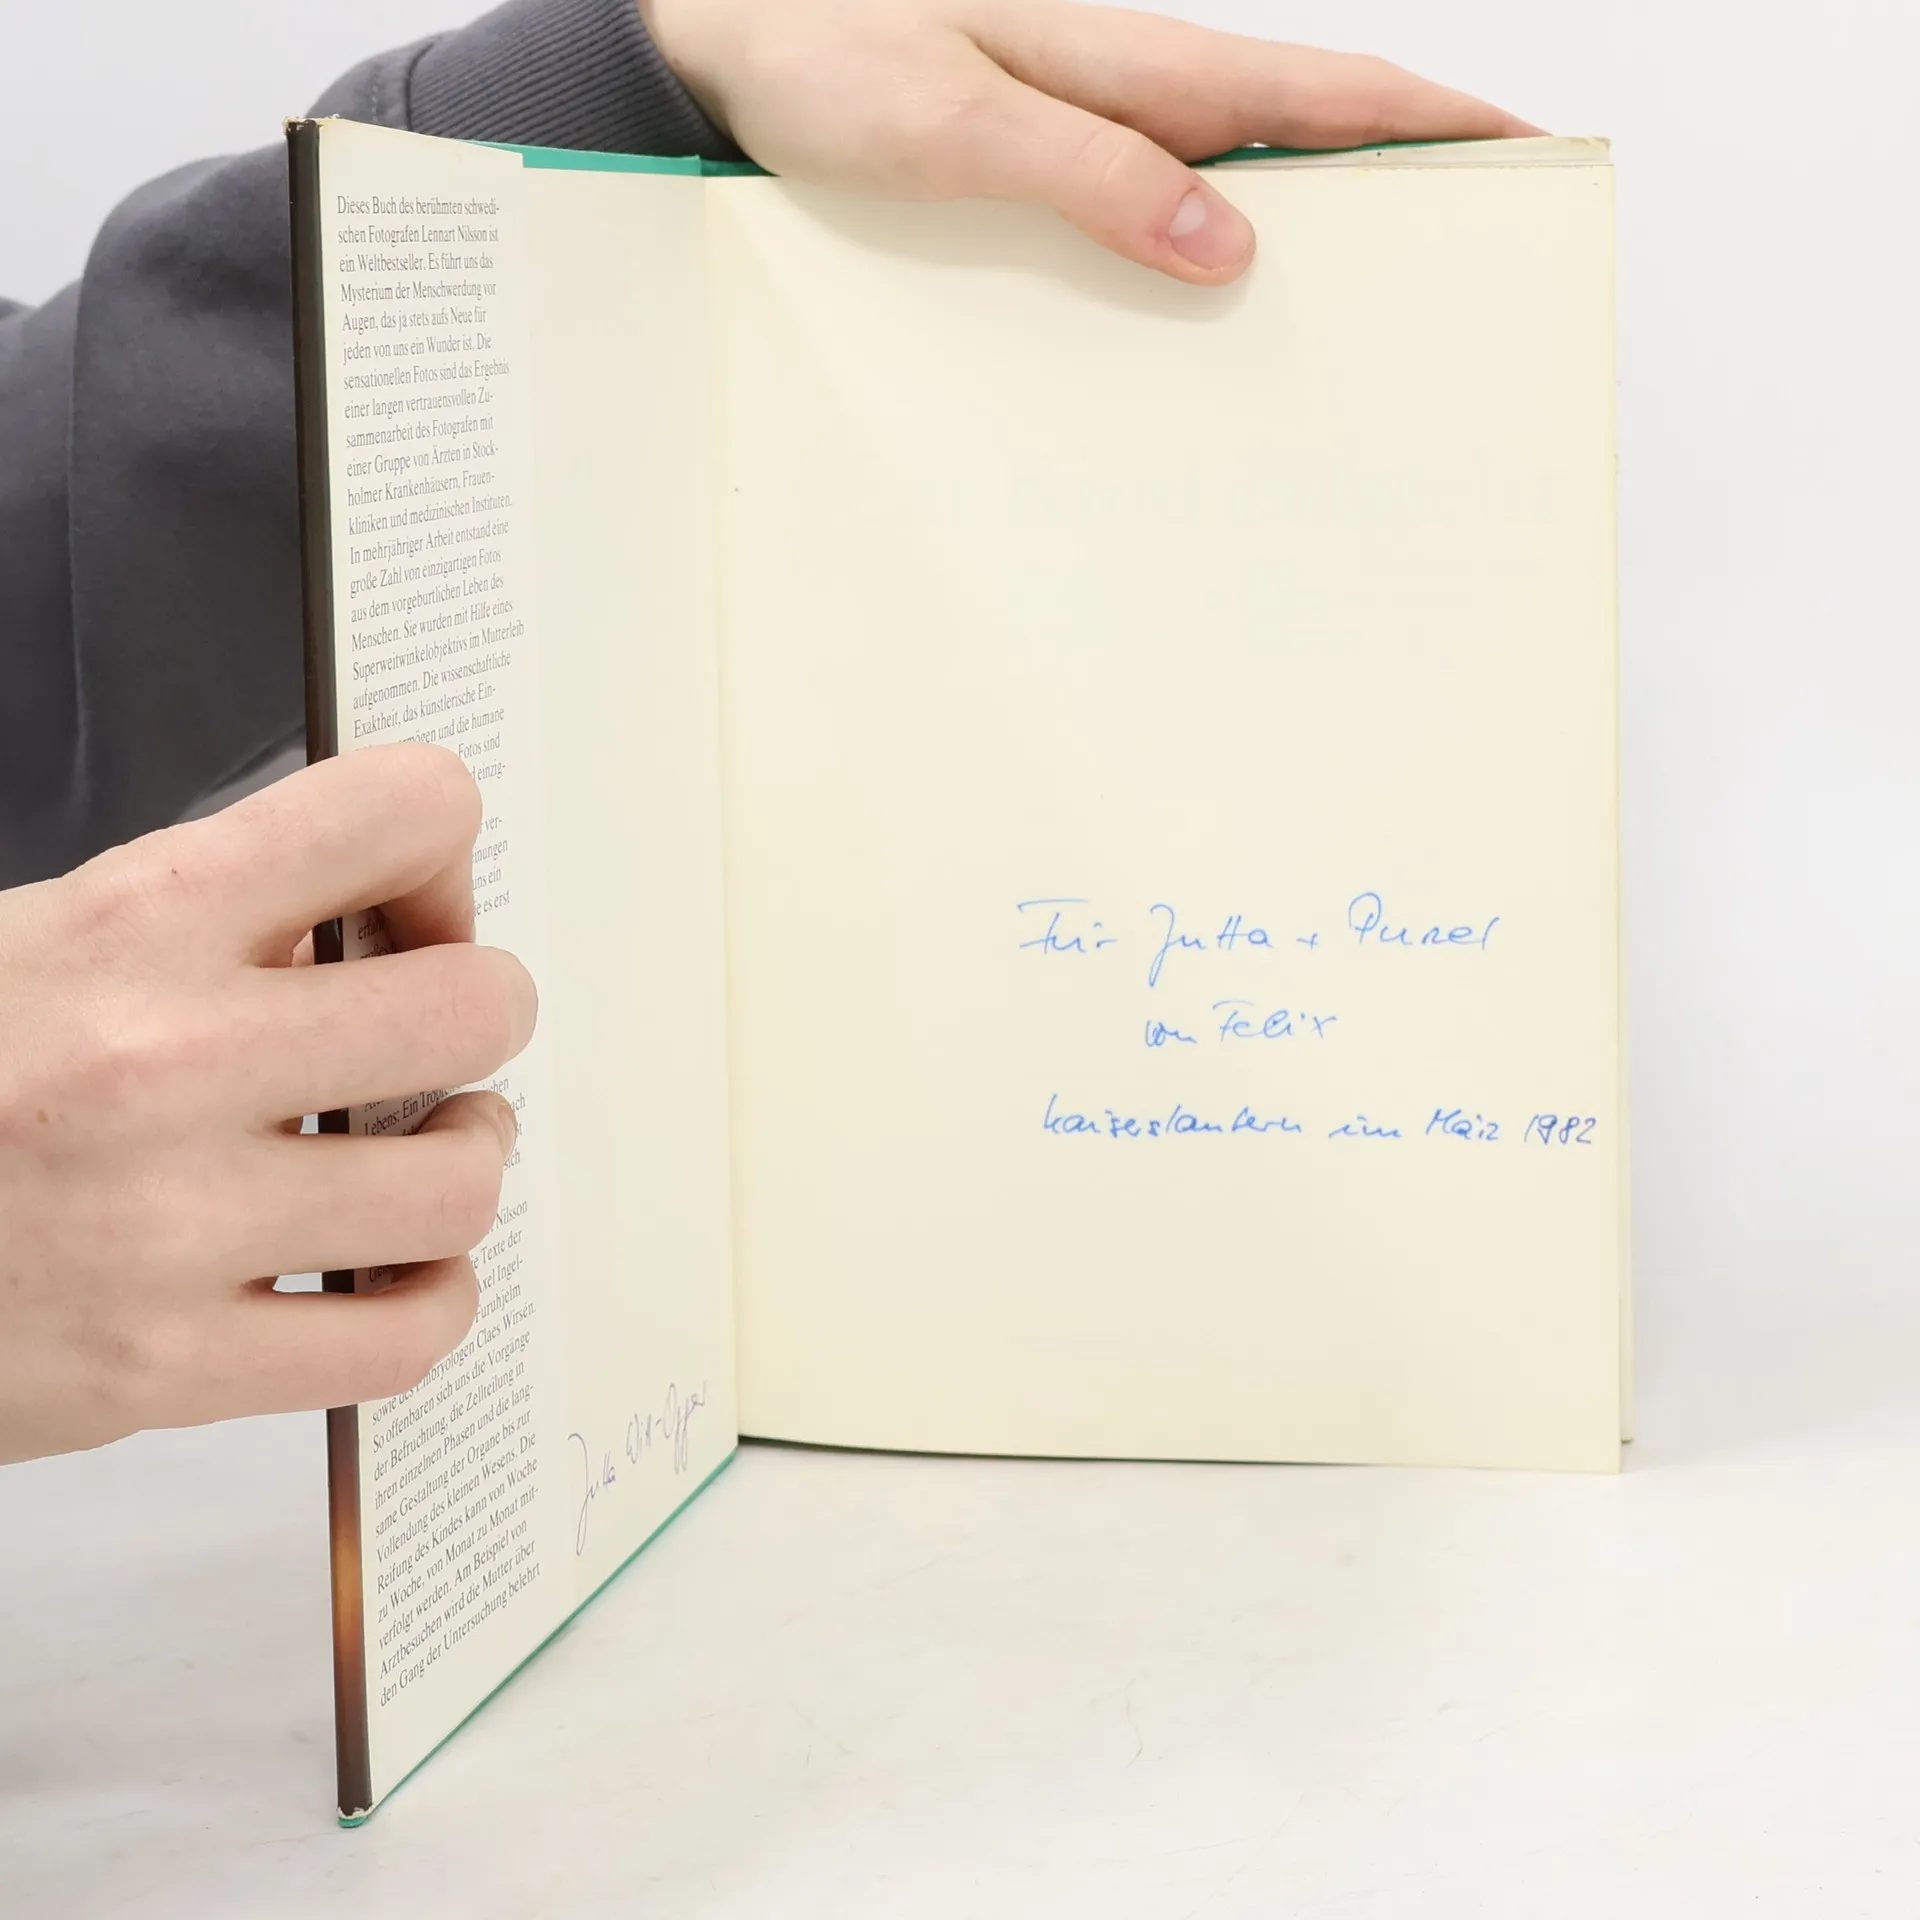 Dieses Buch des berühmten schwedi-
schen Fotografen Lennart Nilsson ist
ein Weltbestseller. Es führt uns das
Mysterium der Menschwerdung vor
Augen, das ja stets aufs Neue für
jeden von uns ein Wunder ist. Die
sensationellen Fotos sind das Ergebnis
einer langen vertrauensvollen Zu-
sammenarbeit des Fotografen mit
einer Gruppe von Ärzten in Stock-
holmer Krankenhäusern, Frauen-
kliniken und medizinischen Instituten.
In mehrjähriger Arbeit entstand eine
große Zahl von einzigartigen Fotos
aus dem vorgeburtlichen Leben des
Menschen. Sie wurden mit Hilfe eines
Superweitwinkelobjektivs im Mutterleib
aufgenommen. Die wissenschaftliche
Exaktheit, das künstlerische Ein-
und die humane
Fotos sind
einzig-
ver-
uns ein
es erst
Lebens: Ein
Nilsson
Texte der
Axel Ingel-
Furuhjelm
sowie des Embryologen Claes Wirsén.
So offenbaren sich uns die Vorgänge
der Befruchtung, die Zellteilung in
ihren einzelnen Phasen und die lang-
same Gestaltung der Organe bis zur
Vollendung des kleinen Wesens. Die
Reifung des Kindes kann von Woche
zu Woche, von Monat zu Monat mit-
verfolgt werden. Am Beispiel von
Arztbesuchen wird die Mutter über
den Gang der Untersuchung belehrt
Jutta Witt-Offer
Für Jutta +
von Felix
Kaiserslautern im März 1982